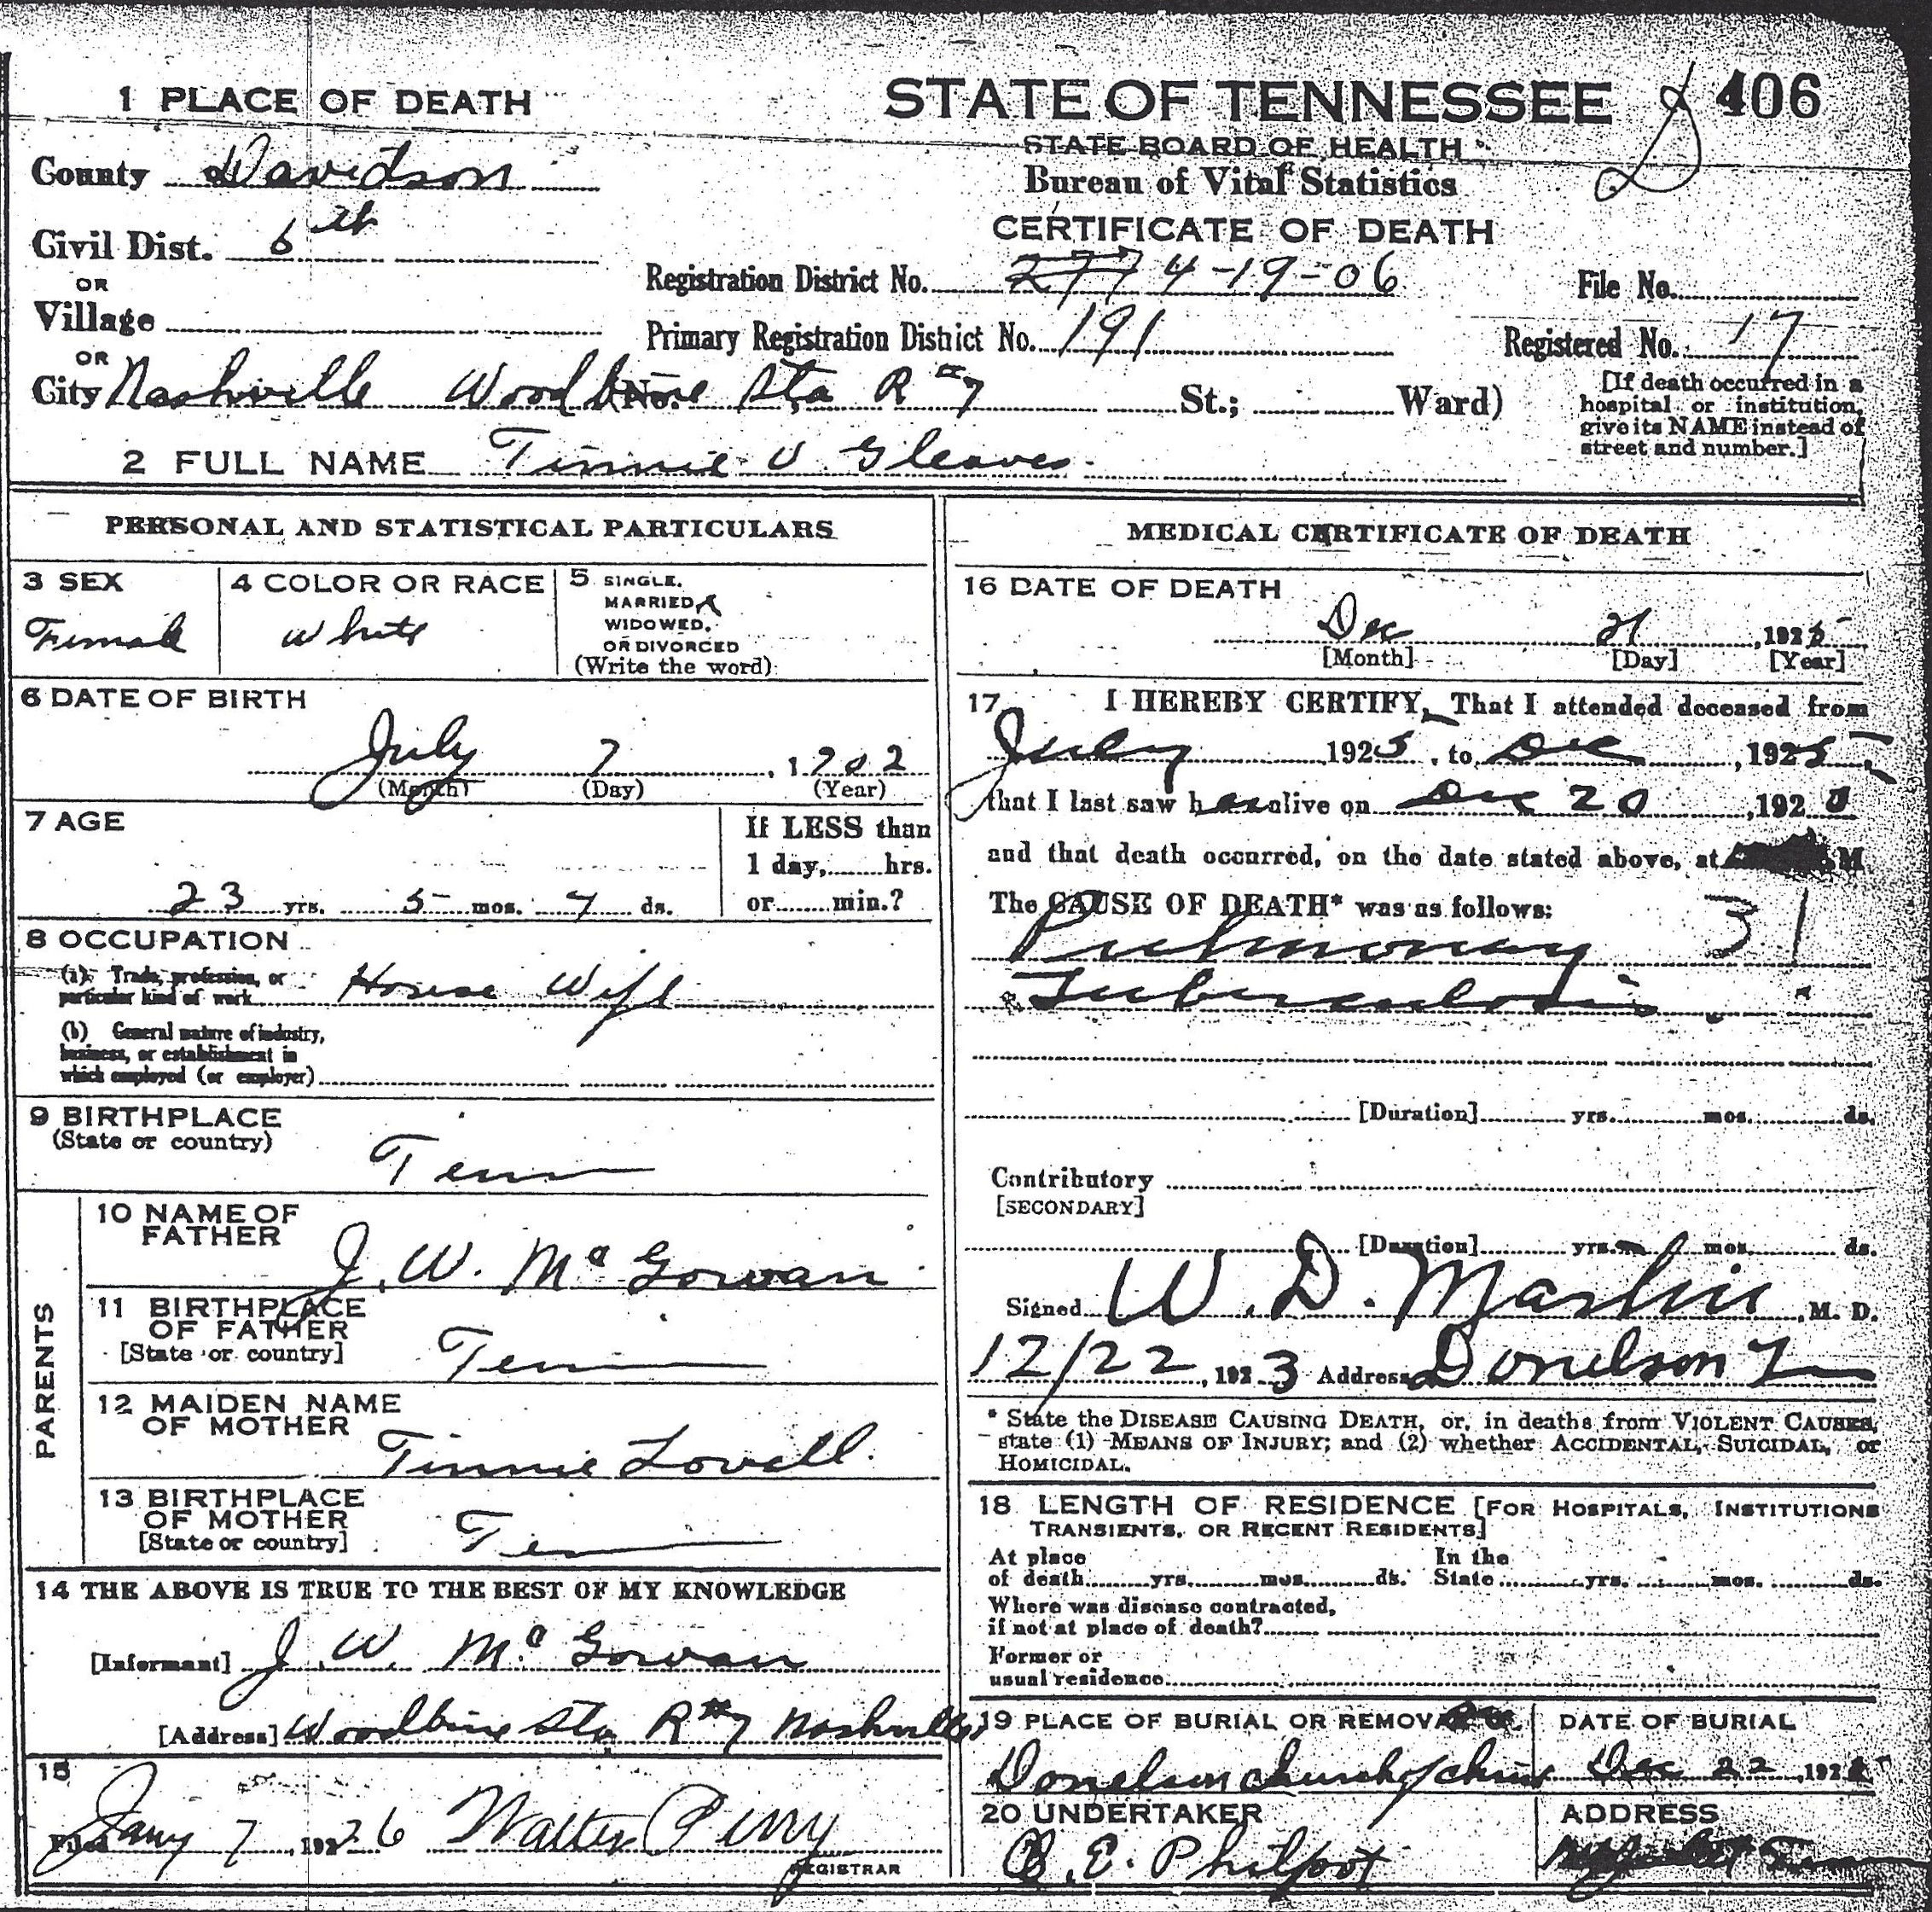 1 PLACE OF DEATH
STATE OF TENNESSEE
406
STATE BOARD OF HEALTH
Bureau of Vital Statistics
CERTIFICATE OF DEATH
County Davidson
Civil Dist. 6th
OR
Village
OR
City Nashville Woodbine Sta R #7 No. St.; Ward)
Registration District No. 277 4-19-06
File No.
Primary Registration District No. 191
Registered No. 17
[If death occurred in a
hospital or institution,
give its NAME instead of
street and number.]
2 FULL NAME Tinnie V Gleaves
PERSONAL AND STATISTICAL PARTICULARS
3 SEX
Female
4 COLOR OR RACE
White
5 SINGLE,
MARRIED,
WIDOWED,
OR DIVORCED
(Write the word)
6 DATE OF BIRTH
July 7, 1902
(Month) (Day) (Year)
7 AGE
23 yrs. 5 mos. 7 ds.
If LESS than
1 day, hrs.
or min.?
8 OCCUPATION
(a) Trade, profession, or
particular kind of work House Wife
(b) General nature of industry,
business, or establishment in
which employed (or employer)
9 BIRTHPLACE
(State or country)
Tenn
PARENTS
10 NAME OF
FATHER
J. W. Mc Gowan
11 BIRTHPLACE
OF FATHER
[State or country]
Tenn
12 MAIDEN NAME
OF MOTHER
Tinnie Lovell
13 BIRTHPLACE
OF MOTHER
[State or country]
Tenn
14 THE ABOVE IS TRUE TO THE BEST OF MY KNOWLEDGE
[Informant] J. W. Mc Gowan
[Address] Woodbine Sta R #7 Nashville
15
Filed Jany 7, 1926 Walter Perry
REGISTRAR
MEDICAL CERTIFICATE OF DEATH
16 DATE OF DEATH
Dec 21, 1925
[Month] [Day] [Year]
17 I HEREBY CERTIFY, That I attended deceased from
July 1925, to Dec, 1925
that I last saw her alive on Dec 20, 192
and that death occurred, on the date stated above, at M
The CAUSE OF DEATH* was as follows:
Pulmonary 31
Tuberculosis
[Duration] yrs. mos. ds.
Contributory
[SECONDARY]
[Duration] yrs. mos. ds.
Signed W. D. Martin, M. D.
12/22, 1923 Address Donelson T
* State the DISEASE CAUSING DEATH, or, in deaths from VIOLENT CAUSES,
state (1) MEANS OF INJURY; and (2) whether ACCIDENTAL, SUICIDAL, or
HOMICIDAL.
18 LENGTH OF RESIDENCE [FOR HOSPITALS, INSTITUTIONS
TRANSIENTS, OR RECENT RESIDENTS]
At place
of death yrs. mos. ds.
In the
State yrs. mos. ds.
Where was disease contracted,
if not at place of death?
Former or
usual residence
19 PLACE OF BURIAL OR REMOVAL
Donelson church of christ
DATE OF BURIAL
Dec 22, 192
20 UNDERTAKER
E. Philpot
ADDRESS